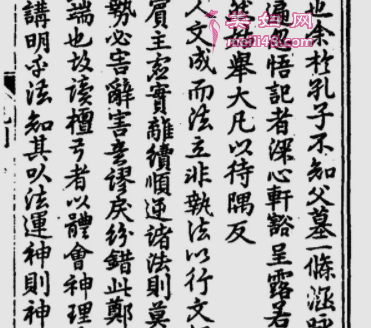 也余於孔子不知父墓一條涵
遍忽悟記者深心軒豁呈露若
舉大凡以待隅反
人文成而法立非執法以行文
賓主虛實離續順逆諸法則莫
勢必害辭害意謬戾紛錯此鄭
端也故读檀弓者以體會神理
講明乎法知其以法運神則神
美妞网